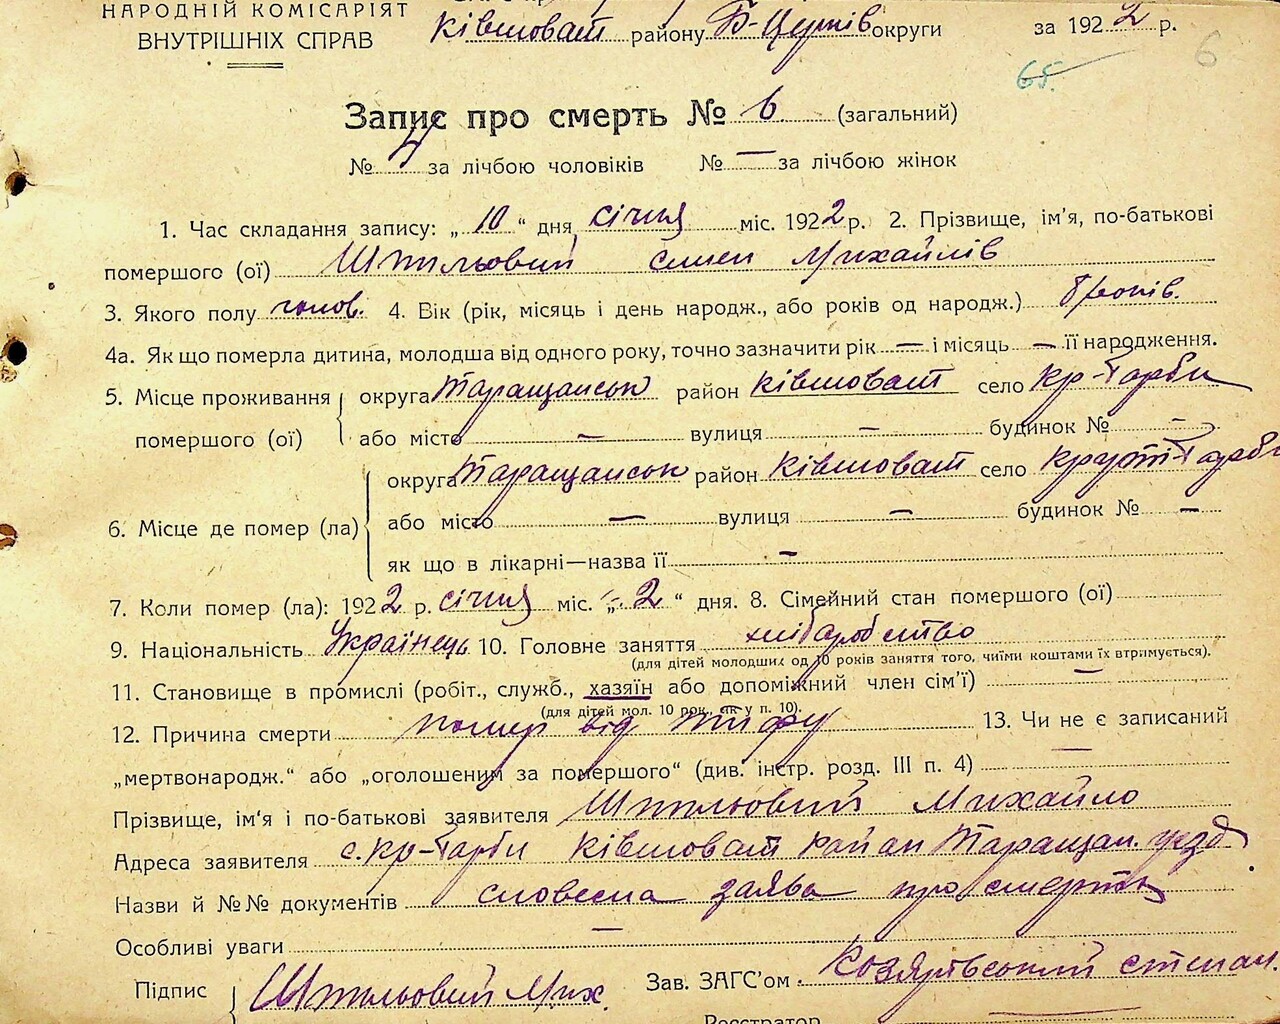 НАРОДНІЙ КОМІСАРІЯТ
ВНУТРІШНІХ СПРАВ
Ківшоват району Б-Церків округи за 1922 р.
6
65.
Запис про смерть № 6 (загальний)
№ 4 за лічбою чоловіків № — за лічбою жінок
1. Час складання запису: „ 10 “ дня січня міс. 1922 р. 2. Прізвище, ім'я, по-батькові
помершого (ої) Шпильовий Семен Михайлів
3. Якого полу чолов. 4. Вік (рік, місяць і день народж., або років од народж.) 8 років.
4а. Як що померла дитина, молодша від одного року, точно зазначити рік — і місяць — її народження.
5. Місце проживання помершого (ої) округа Таращанськ район Ківшоват село Кр-Горби
або місто — вулиця — будинок № —
6. Місце де помер (ла) округа Таращанськ район Ківшоват село Круті-Горби
або місто — вулиця — будинок № —
як що в лікарні—назва її —
7. Коли помер (ла): 1922 р. січня міс. „ 2 “ дня. 8. Сімейний стан помершого (ої)
9. Національність Українець 10. Головне заняття хліборобство
(для дітей молодших од 10 років заняття того, чиїми коштами їх втримується).
11. Становище в промислі (робіт., служб., хазяїн або допоміжний член сім'ї) —
(для дітей мол. 10 рок., як у п. 10).
12. Причина смерти помер від тифу 13. Чи не є записаний
„мертвонародж.“ або „оголошеним за помершого“ (див. інстр. розд. III п. 4) —
Прізвище, ім'я і по-батькові заявителя Шпильовий Михайло
Адреса заявителя с. Кр-Горби Ківшоват район Таращан. уезд
Назви й №№ документів словесна заява про смерть
Особливі уваги —
Підпис Шпильовий Мих Зав. ЗАГС'ом Козятівський Степан.
Реєстратор